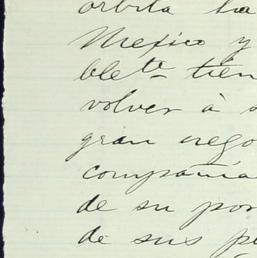 orbita la
Mexico y
ble tien
volver à s
gran nego
compañia
de su por
de sus pi